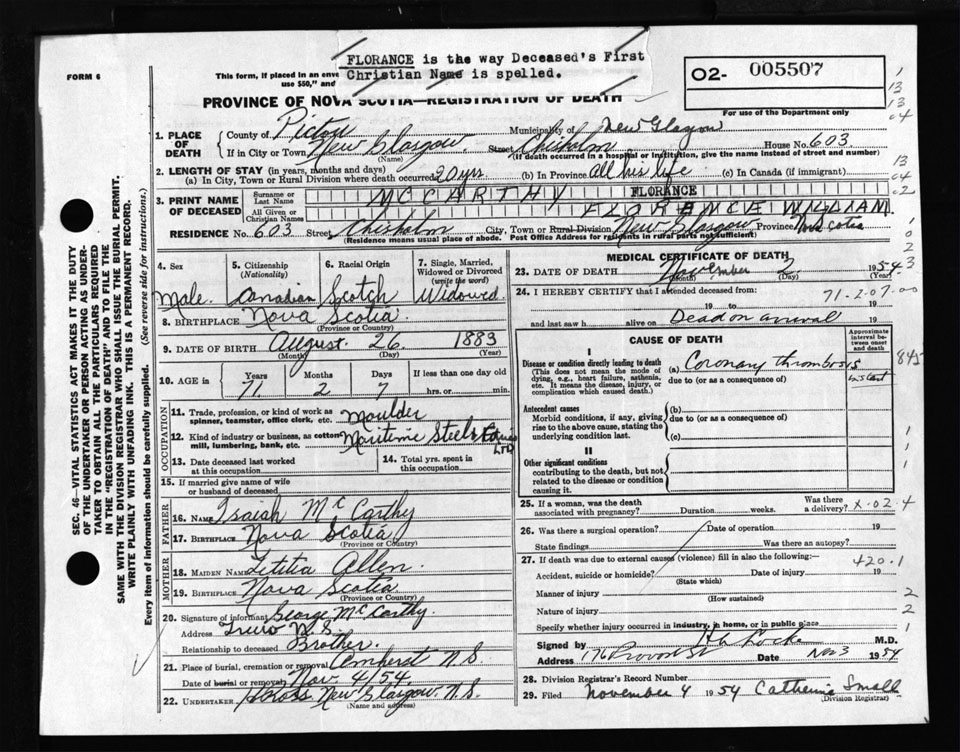 FLORANCE is the way Deceased's First
Christian Name is spelled.
FORM 6
This form, if placed in an enve
use $50," and
O2- 005507
For use of the Department only
PROVINCE OF NOVA SCOTIA—REGISTRATION OF DEATH
1. PLACE OF DEATH
County of Pictou Municipality of New Glasgow
If in City or Town New Glasgow (Name) Street Chisholm House No. 603
(If death occurred in a hospital or institution, give the name instead of street and number)
2. LENGTH OF STAY (in years, months and days)
(a) In City, Town or Rural Division where death occurred 20 yrs. (b) In Province All his life (c) In Canada (if immigrant)
3. PRINT NAME OF DECEASED
Surname or Last Name MCCARTHY FLORANCE
All Given or Christian Names FLORENCE WILLIAM
RESIDENCE No. 603 Street Chisholm City, Town or Rural Division New Glasgow Province Nova Scotia
(Residence means usual place of abode. Post Office Address for residents in rural parts not sufficient)
4. Sex Male
5. Citizenship (Nationality) Canadian
6. Racial Origin Scotch
7. Single, Married, Widowed or Divorced (write the word) Widowed
8. BIRTHPLACE Nova Scotia
(Province or Country)
9. DATE OF BIRTH August 26 1883
(Month) (Day) (Year)
10. AGE in Years Months Days If less than one day old
71 2 7 hrs. or min.
OCCUPATION
11. Trade, profession, or kind of work as spinner, teamster, office clerk, etc. Moulder
12. Kind of industry or business, as cotton mill, lumbering, bank, etc. Maritime Steel & LTD
13. Date deceased last worked at this occupation
14. Total yrs. spent in this occupation
15. If married give name of wife or husband of deceased
FATHER
16. NAME Isaiah McCarthy
17. BIRTHPLACE Nova Scotia
(Province or Country)
MOTHER
18. MAIDEN NAME Letitia Allen
19. BIRTHPLACE Nova Scotia
(Province or Country)
20. Signature of informant George McCarthy
Address Truro N.S.
Relationship to deceased Brother.
21. Place of burial, cremation or removal Amherst N.S.
Date of burial or removal Nov 4/54.
22. UNDERTAKER New Glasgow. N.S.
(Name and address)
MEDICAL CERTIFICATE OF DEATH
23. DATE OF DEATH November 2 1954
(Month) (Day) (Year)
24. I HEREBY CERTIFY that I attended deceased from: 71-2-07-00
19 to 19
and last saw h alive on Dead on arrival 19
CAUSE OF DEATH
Approximate interval between onset and death
I
Disease or condition directly leading to death
(This does not mean the mode of dying, e.g., heart failure, asthenia, etc. It means the disease, injury, or complication which caused death.)
(a) Coronary thrombosis
due to (or as a consequence of)
845
Antecedent causes
Morbid conditions, if any, giving rise to the above cause, stating the underlying condition last.
(b)
due to (or as a consequence of)
(c)
II
Other significant conditions
contributing to the death, but not related to the disease or condition causing it.
25. If a woman, was the death associated with pregnancy? Duration weeks. Was there a delivery? X-02-4
26. Was there a surgical operation? Date of operation 19
State findings Was there an autopsy?
27. If death was due to external causes (violence) fill in also the following: 420.1
Accident, suicide or homicide? Date of injury 19
(State which)
Manner of injury 2
(How sustained)
Nature of injury 2
Specify whether injury occurred in industry, in home, or in public place 1
Signed by M.D.
Address 176 Provost St Date Nov 3 1954
28. Division Registrar's Record Number
29. Filed November 4 1954 Catherine Small
(Division Registrar)
SEC. 46—VITAL STATISTICS ACT MAKES IT THE DUTY
OF THE UNDERTAKER OR PERSON ACTING AS UNDER-
TAKER TO OBTAIN ALL THE PARTICULARS REQUIRED
IN THE "REGISTRATION OF DEATH" AND TO FILE THE
SAME WITH THE DIVISION REGISTRAR WHO SHALL ISSUE THE BURIAL PERMIT.
WRITE PLAINLY WITH UNFADING INK. THIS IS A PERMANENT RECORD.
Every item of information should be carefully supplied. (See reverse side for instructions.)